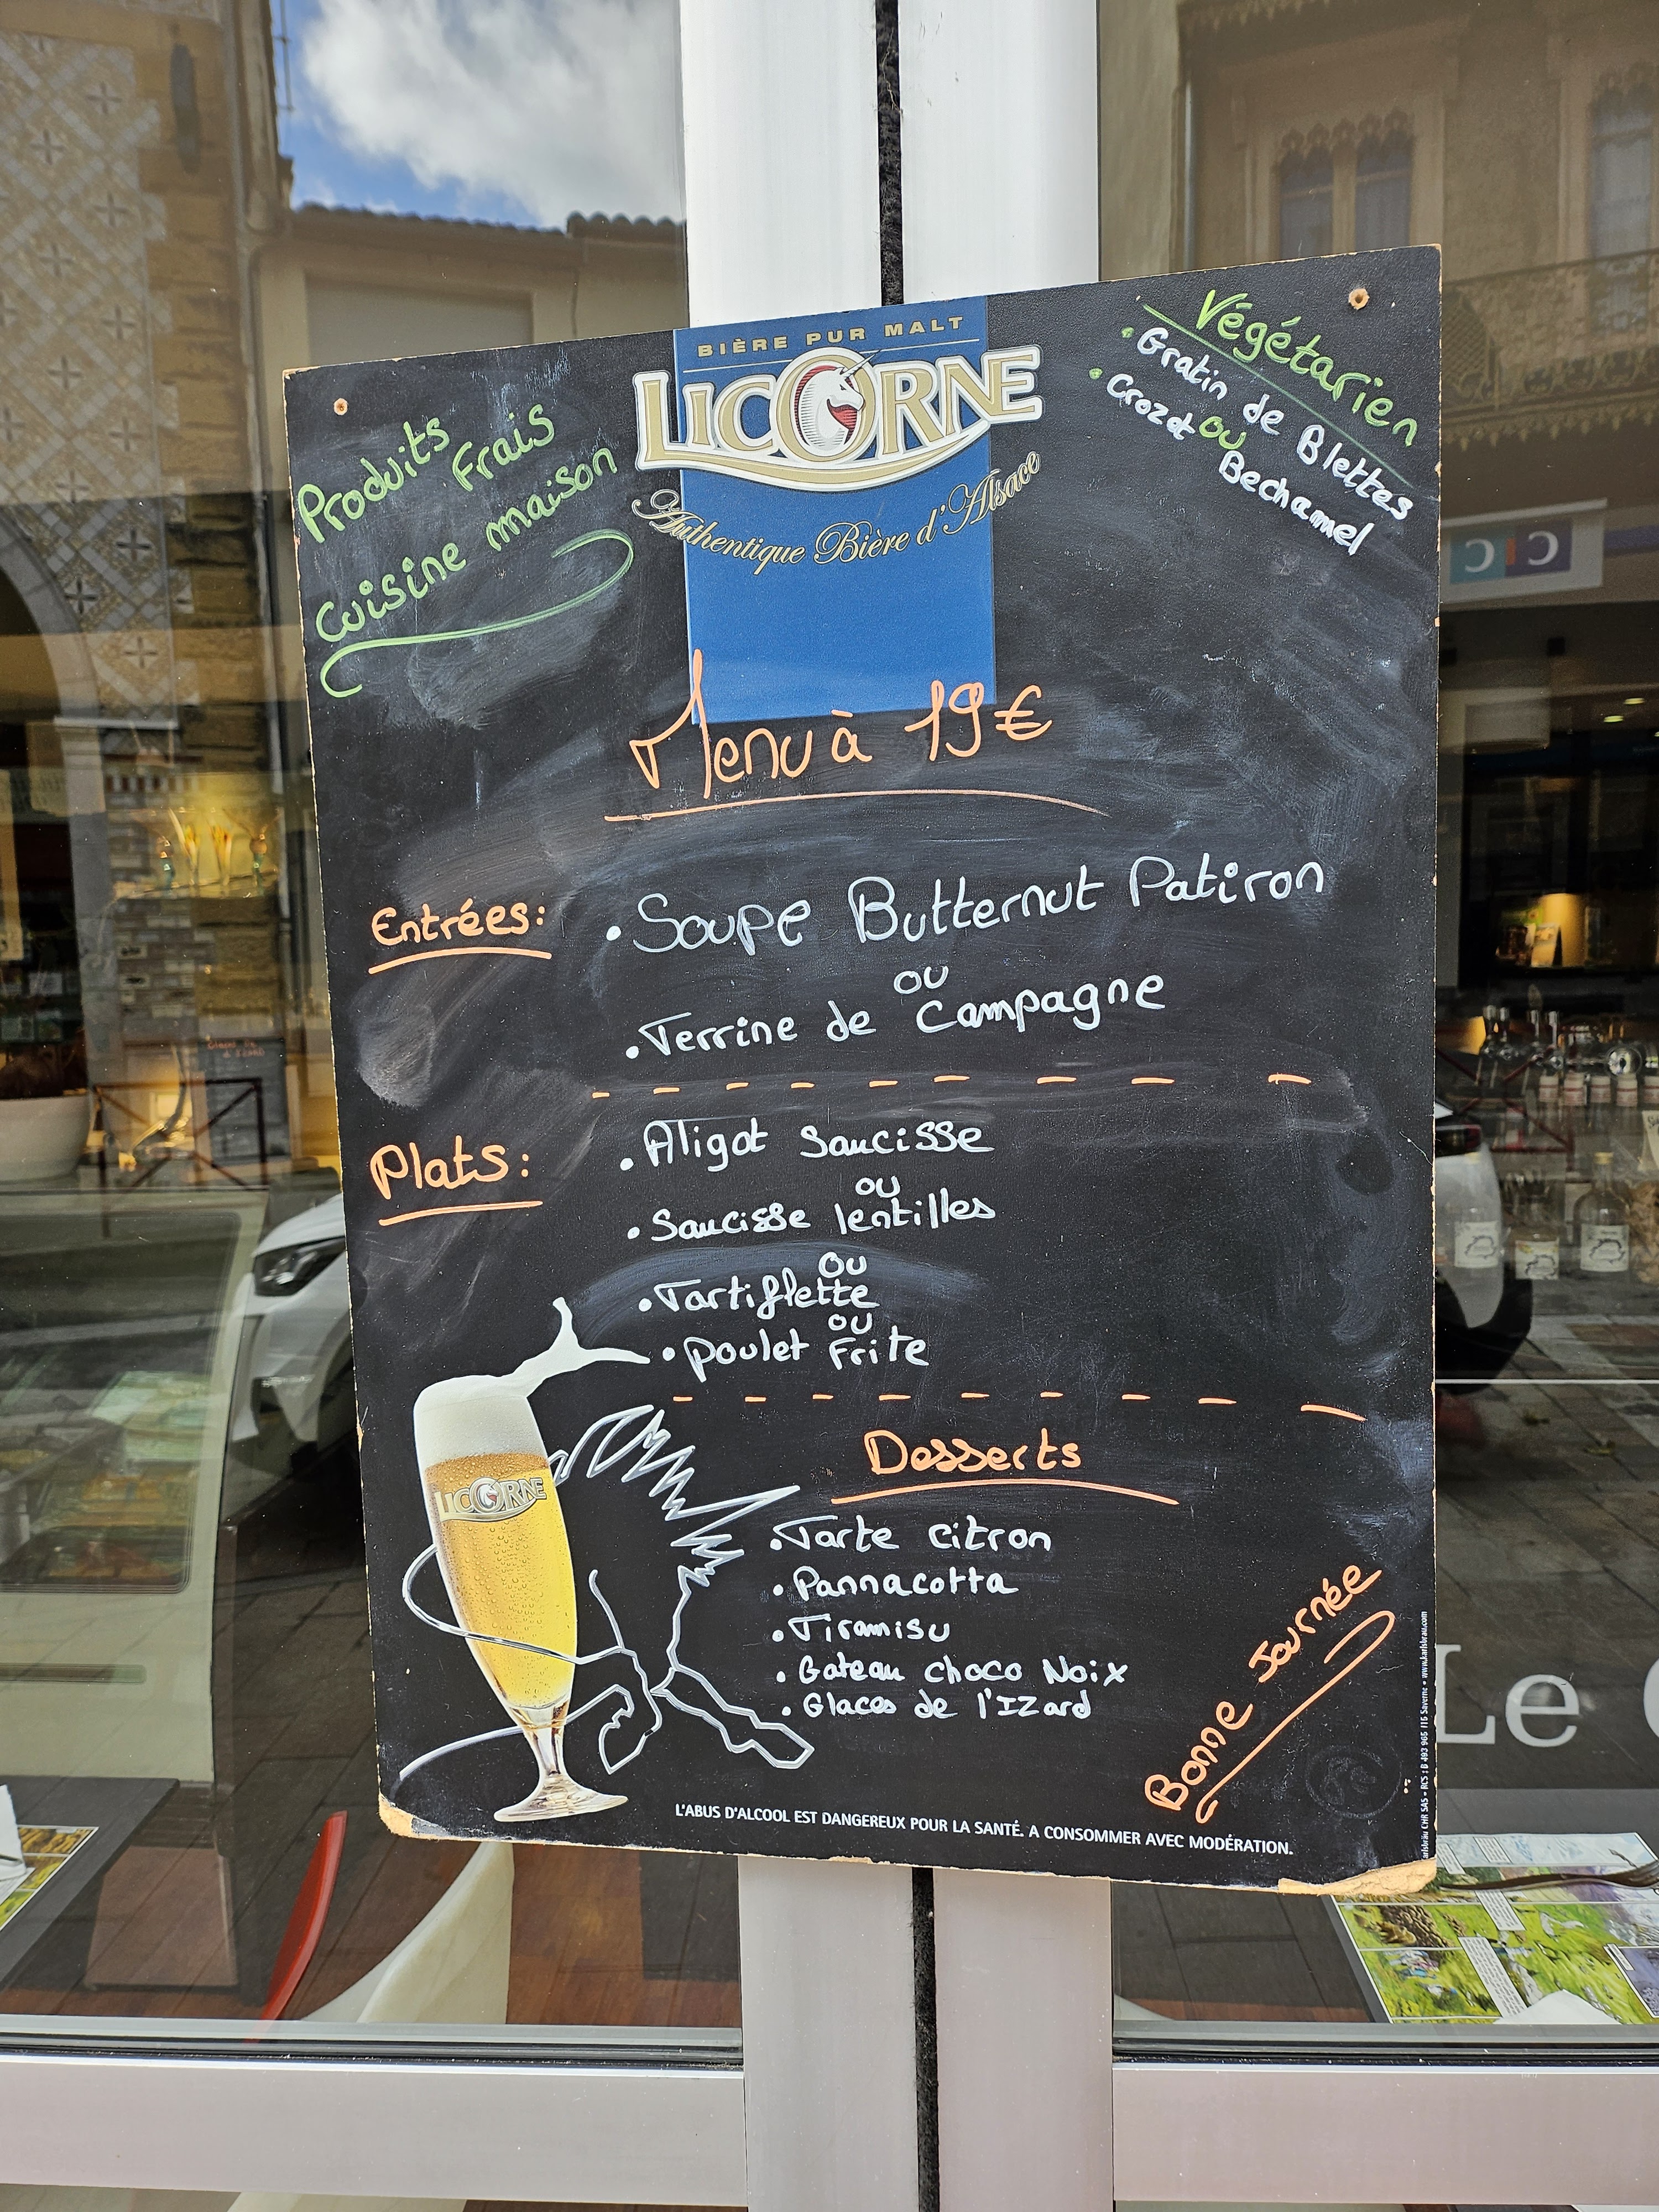 BIÈRE PUR MALT
LICORNE
Authentique Bière d'Alsace
Produits
Frais
Cuisine maison
Végétarien
• Gratin de Blettes
ou
• Crozet Bechamel
Menu à 19€
Entrées:
• Soupe Butternut Patiron
ou
• Terrine de Campagne
Plats:
• Aligot Saucisse
ou
• Saucisse lentilles
ou
• Tartiflette
ou
• poulet Frite
Desserts
• Tarte citron
• Pannacotta
• Tiramisu
• Gateau choco Noix
• Glaces de l'Izard
Bonne Journée
LICORNE
L'ABUS D'ALCOOL EST DANGEREUX POUR LA SANTÉ. A CONSOMMER AVEC MODÉRATION.
Le